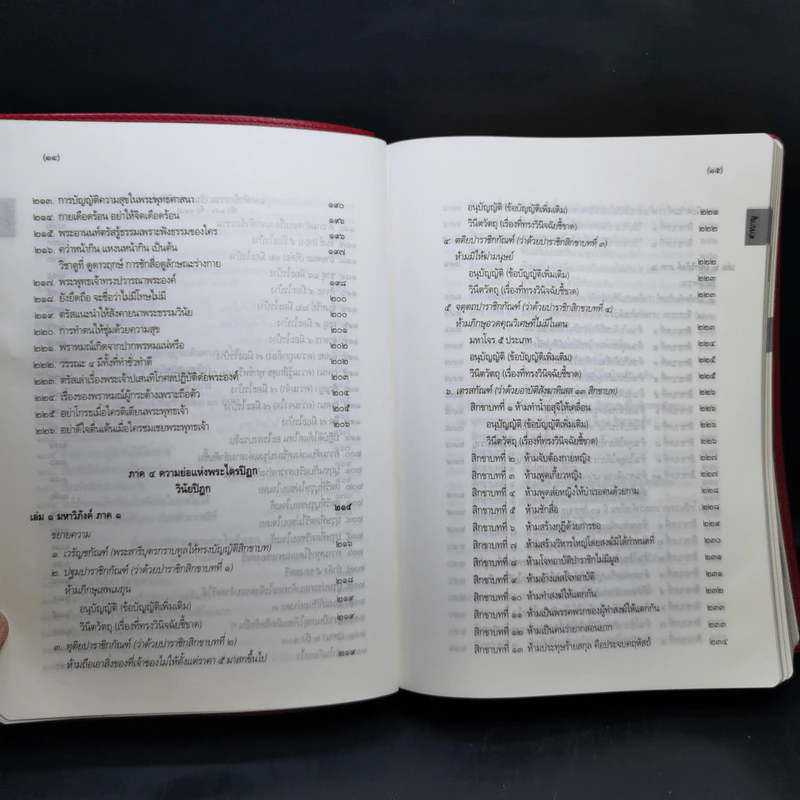 (๑๔)
๒๑๓. การบัญญัติความสุขในพระพุทธศาสนา ๑๙๐
๒๑๔. กายเดือดร้อน อย่าให้จิตเดือดร้อน ๑๙๖
๒๑๕. พระอานนท์ตรัสรู้ธรรมเพราะฟังธรรมของใคร ๑๙๖
๒๑๖. คว่ำหน้ากิน แหงนหน้ากิน เป็นต้น ๑๙๗
วิชาดูที่ ดูดาวฤกษ์ การชักสื่อดูลักษณะร่างกาย
๒๑๗. พระพุทธเจ้าทรงปวารณาพระองค์ ๑๙๘
๒๑๘. ยังยึดถือ จะชื่อว่าไม่มีโทษไม่มี ๒๐๐
๒๑๙. ตรัสแนะนำให้สังคายนาพระธรรมวินัย ๒๐๐
๒๒๐. การทำตนให้ชุ่มด้วยความสุข ๒๐๐
๒๒๑. พราหมณ์เกิดจากปากพรหมแน่หรือ ๒๐๒
๒๒๒. วรรณะ ๔ มีทั้งที่ทำชั่วทำดี ๒๐๒
๒๒๓. ตรัสเล่าเรื่องพระเจ้าปเสนทิโกศลปฏิบัติต่อพระองค์ ๒๐๓
๒๒๔. เรื่องของพราหมณ์ผู้กระด้างเพราะถือตัว ๒๐๔
๒๒๕. อย่าโกรธเมื่อใครติเตียนพระพุทธเจ้า ๒๐๕
๒๒๖. อย่าดีใจตื่นเต้นเมื่อใครชมเชยพระพุทธเจ้า ๒๐๖
ภาค ๔ ความย่อแห่งพระไตรปิฎก
วินัยปิฎก
เล่ม ๑ มหาวิภังค์ ภาค ๑ ๒๑๕
ขยายความ
๑. เวรัญชกัณฑ์ (พระสารีบุตรกราบทูลให้ทรงบัญญัติสิกขาบท) ๒๑๖
๒. ปฐมปาราชิกกัณฑ์ (ว่าด้วยปาราชิกสิกขาบทที่ ๑)
ห้ามภิกษุเสพเมถุน ๒๑๘
อนุบัญญัติ (ข้อบัญญัติเพิ่มเติม) ๒๑๙
วินีตวัตถุ (เรื่องที่ทรงวินิจฉัยชี้ขาด) ๒๑๙
๓. ทุติยปาราชิกกัณฑ์ (ว่าด้วยปาราชิกสิกขาบทที่ ๒)
ห้ามถือเอาสิ่งของที่เจ้าของไม่ให้ตั้งแต่ราคา ๕ มาสกขึ้นไป ๒๑๙
(๑๕)
อนุบัญญัติ (ข้อบัญญัติเพิ่มเติม) ๒๒๑
วินีตวัตถุ (เรื่องที่ทรงวินิจฉัยชี้ขาด) ๒๒๑
๔. ตติยปาราชิกกัณฑ์ (ว่าด้วยปาราชิกสิกขาบทที่ ๓)
ห้ามมิให้ฆ่ามนุษย์ ๒๒๒
อนุบัญญัติ (ข้อบัญญัติเพิ่มเติม) ๒๒๓
วินีตวัตถุ (เรื่องที่ทรงวินิจฉัยชี้ขาด) ๒๒๓
๕. จตุตถปาราชิกกัณฑ์ (ว่าด้วยปาราชิกสิกขาบทที่ ๔)
ห้ามภิกษุอวดคุณวิเศษที่ไม่มีในตน ๒๒๓
มหาโจร ๕ ประเภท ๒๒๔
อนุบัญญัติ (ข้อบัญญัติเพิ่มเติม) ๒๒๕
วินีตวัตถุ (เรื่องที่ทรงวินิจฉัยชี้ขาด) ๒๒๕
๖. เตรสกัณฑ์ (ว่าด้วยอาบัติสังฆาทิเสส ๑๓ สิกขาบท) ๒๒๕
สิกขาบทที่ ๑ ห้ามทำน้ำอสุจิให้เคลื่อน ๒๒๖
อนุบัญญัติ (ข้อบัญญัติเพิ่มเติม) ๒๒๖
วินีตวัตถุ (เรื่องที่ทรงวินิจฉัยชี้ขาด) ๒๒๖
สิกขาบทที่ ๒ ห้ามจับต้องกายหญิง ๒๒๗
สิกขาบทที่ ๓ ห้ามพูดเกี้ยวหญิง ๒๒๗
สิกขาบทที่ ๔ ห้ามพูดล่อหญิงให้บำเรอตนด้วยกาม ๒๒๘
สิกขาบทที่ ๕ ห้ามชักสื่อ ๒๒๘
สิกขาบทที่ ๖ ห้ามสร้างกุฎีด้วยการขอ ๒๒๙
สิกขาบทที่ ๗ ห้ามสร้างวิหารใหญ่โดยสงฆ์มิได้กำหนดที่ ๒๓๐
สิกขาบทที่ ๘ ห้ามโจทอาบัติปาราชิกไม่มีมูล ๒๓๑
สิกขาบทที่ ๙ ห้ามอ้างเลสโจทอาบัติ ๒๓๒
สิกขาบทที่ ๑๐ ห้ามทำสงฆ์ให้แตกกัน ๒๓๒
สิกขาบทที่ ๑๑ ห้ามเป็นพรรคพวกของผู้ทำสงฆ์ให้แตกกัน ๒๓๓
สิกขาบทที่ ๑๒ ห้ามเป็นคนว่ายากสอนยาก ๒๓๓
สิกขาบทที่ ๑๓ ห้ามประทุษร้ายสกุล คือประจบคฤหัสถ์ ๒๓๔